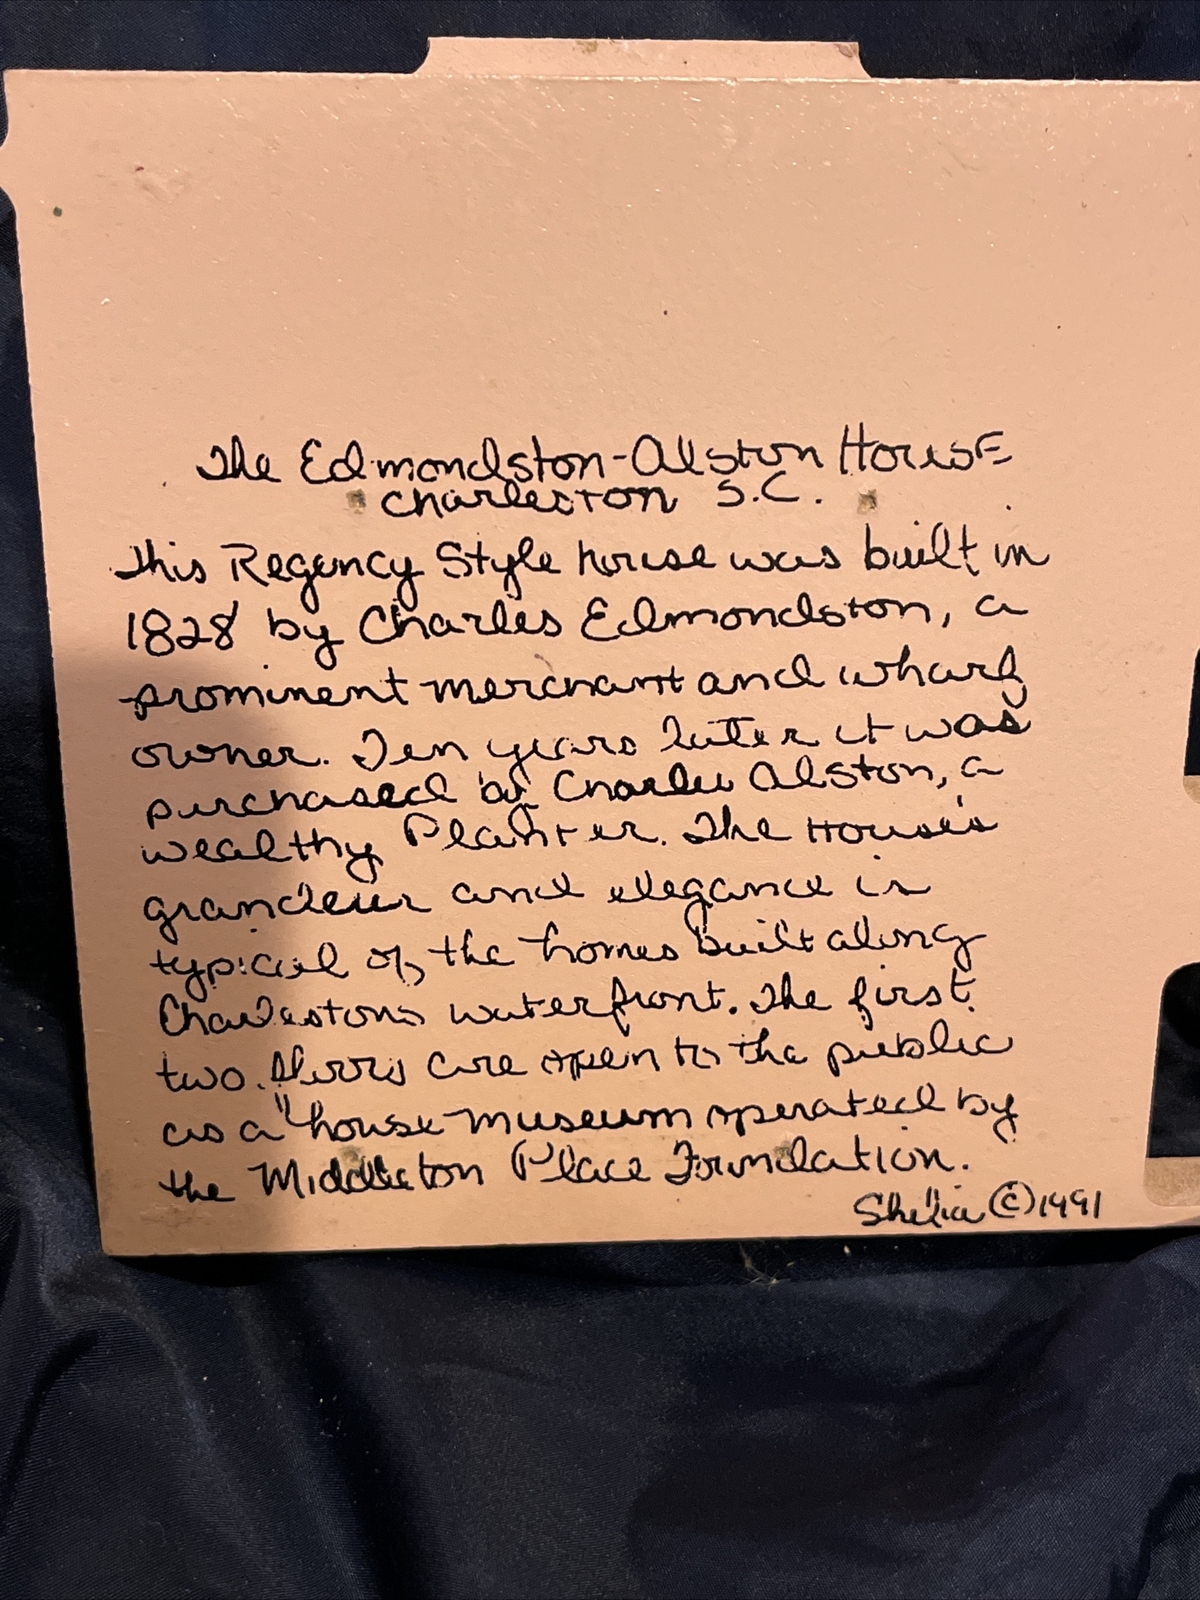 The Edmondston-Alston House
Charleston S.C.
This Regency Style house was built in
1828 by Charles Edmondston, a
prominent merchant and wharf
owner. Ten years later it was
purchased by Charles Alston, a
wealthy Planter. The House's
grandeur and elegance is
typical of the homes built along
Charleston's waterfront. The first
two floors are open to the public
as a "house museum operated by
the Middleton Place Foundation.
Shelia ©1991